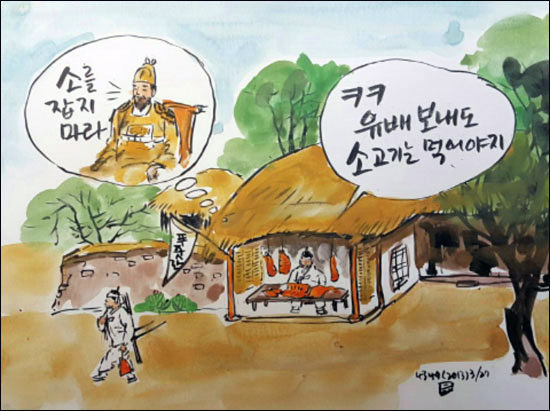 소를
잡지
마라
ㅋㅋ
유배 보내도
소고기는 먹어야지
푸줏간